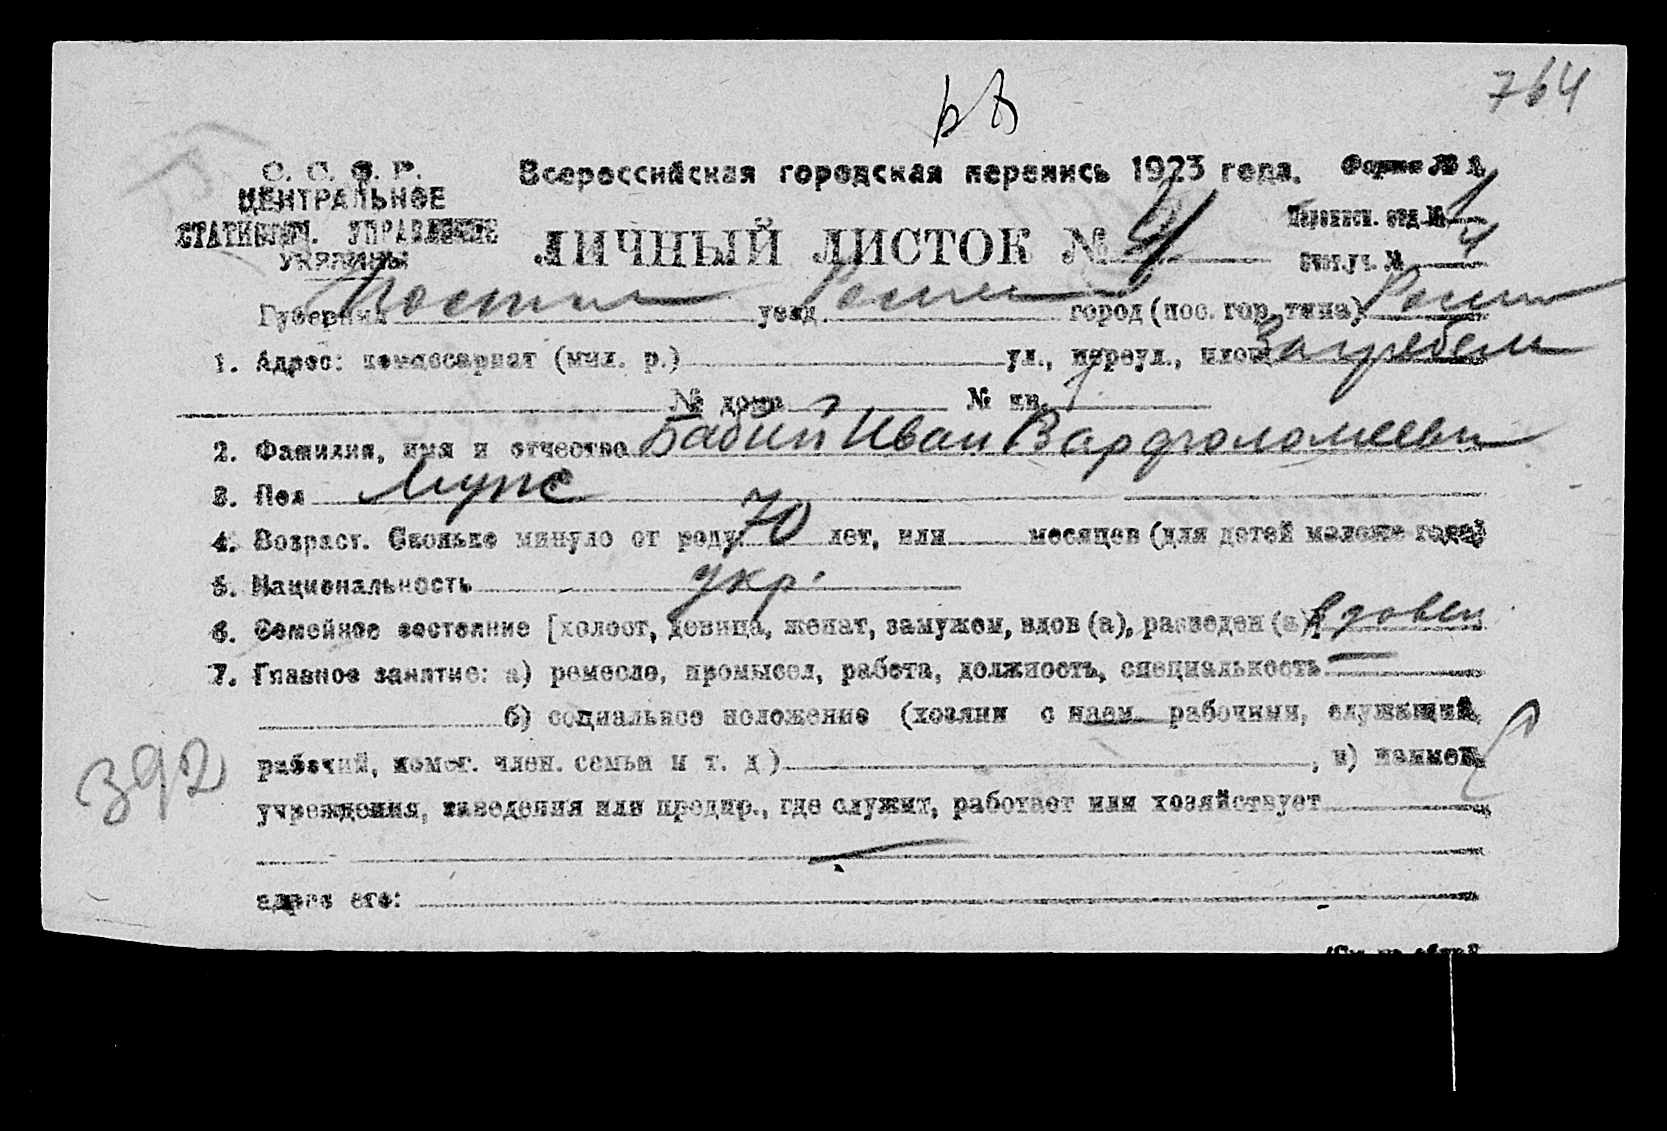 764
С. С. С. Р.
ЦЕНТРАЛЬНОЕ
СТАТИСТИЧ. УПРАВЛЕНИЕ
УКРАИНЫ
Всероссийская городская перепись 1923 года. Форма № 1.
Переписн. отд. № 1
ЛИЧНЫЙ ЛИСТОК № 4
Счет. уч. № 4
Губерния уезд город (пос. гор. типа)
1. Адрес: комиссариат (мил. р.) ул., переул., площ. Загребелля
№ дома № кв.
2. Фамилия, имя и отчество Бабий Иван Варфоломееви
3. Пол Муж
4. Возраст. Сколько минуло от роду 70 лет, или месяцев (для детей моложе года)
5. Национальность укр.
6. Семейное состояние [холост, девица, женат, замужем, вдов (а), разведен (а)] вдовец
7. Главное занятие: а) ремесло, промысел, работа, должность, специальность —
б) социальное положение (хозяин с наем. рабочими, служащий,
392
рабочий, помог. член. семьи и т. д.) , в) наимен.
учреждения, заведения или предпр., где служит, работает или хозяйствует
—
адрес его: